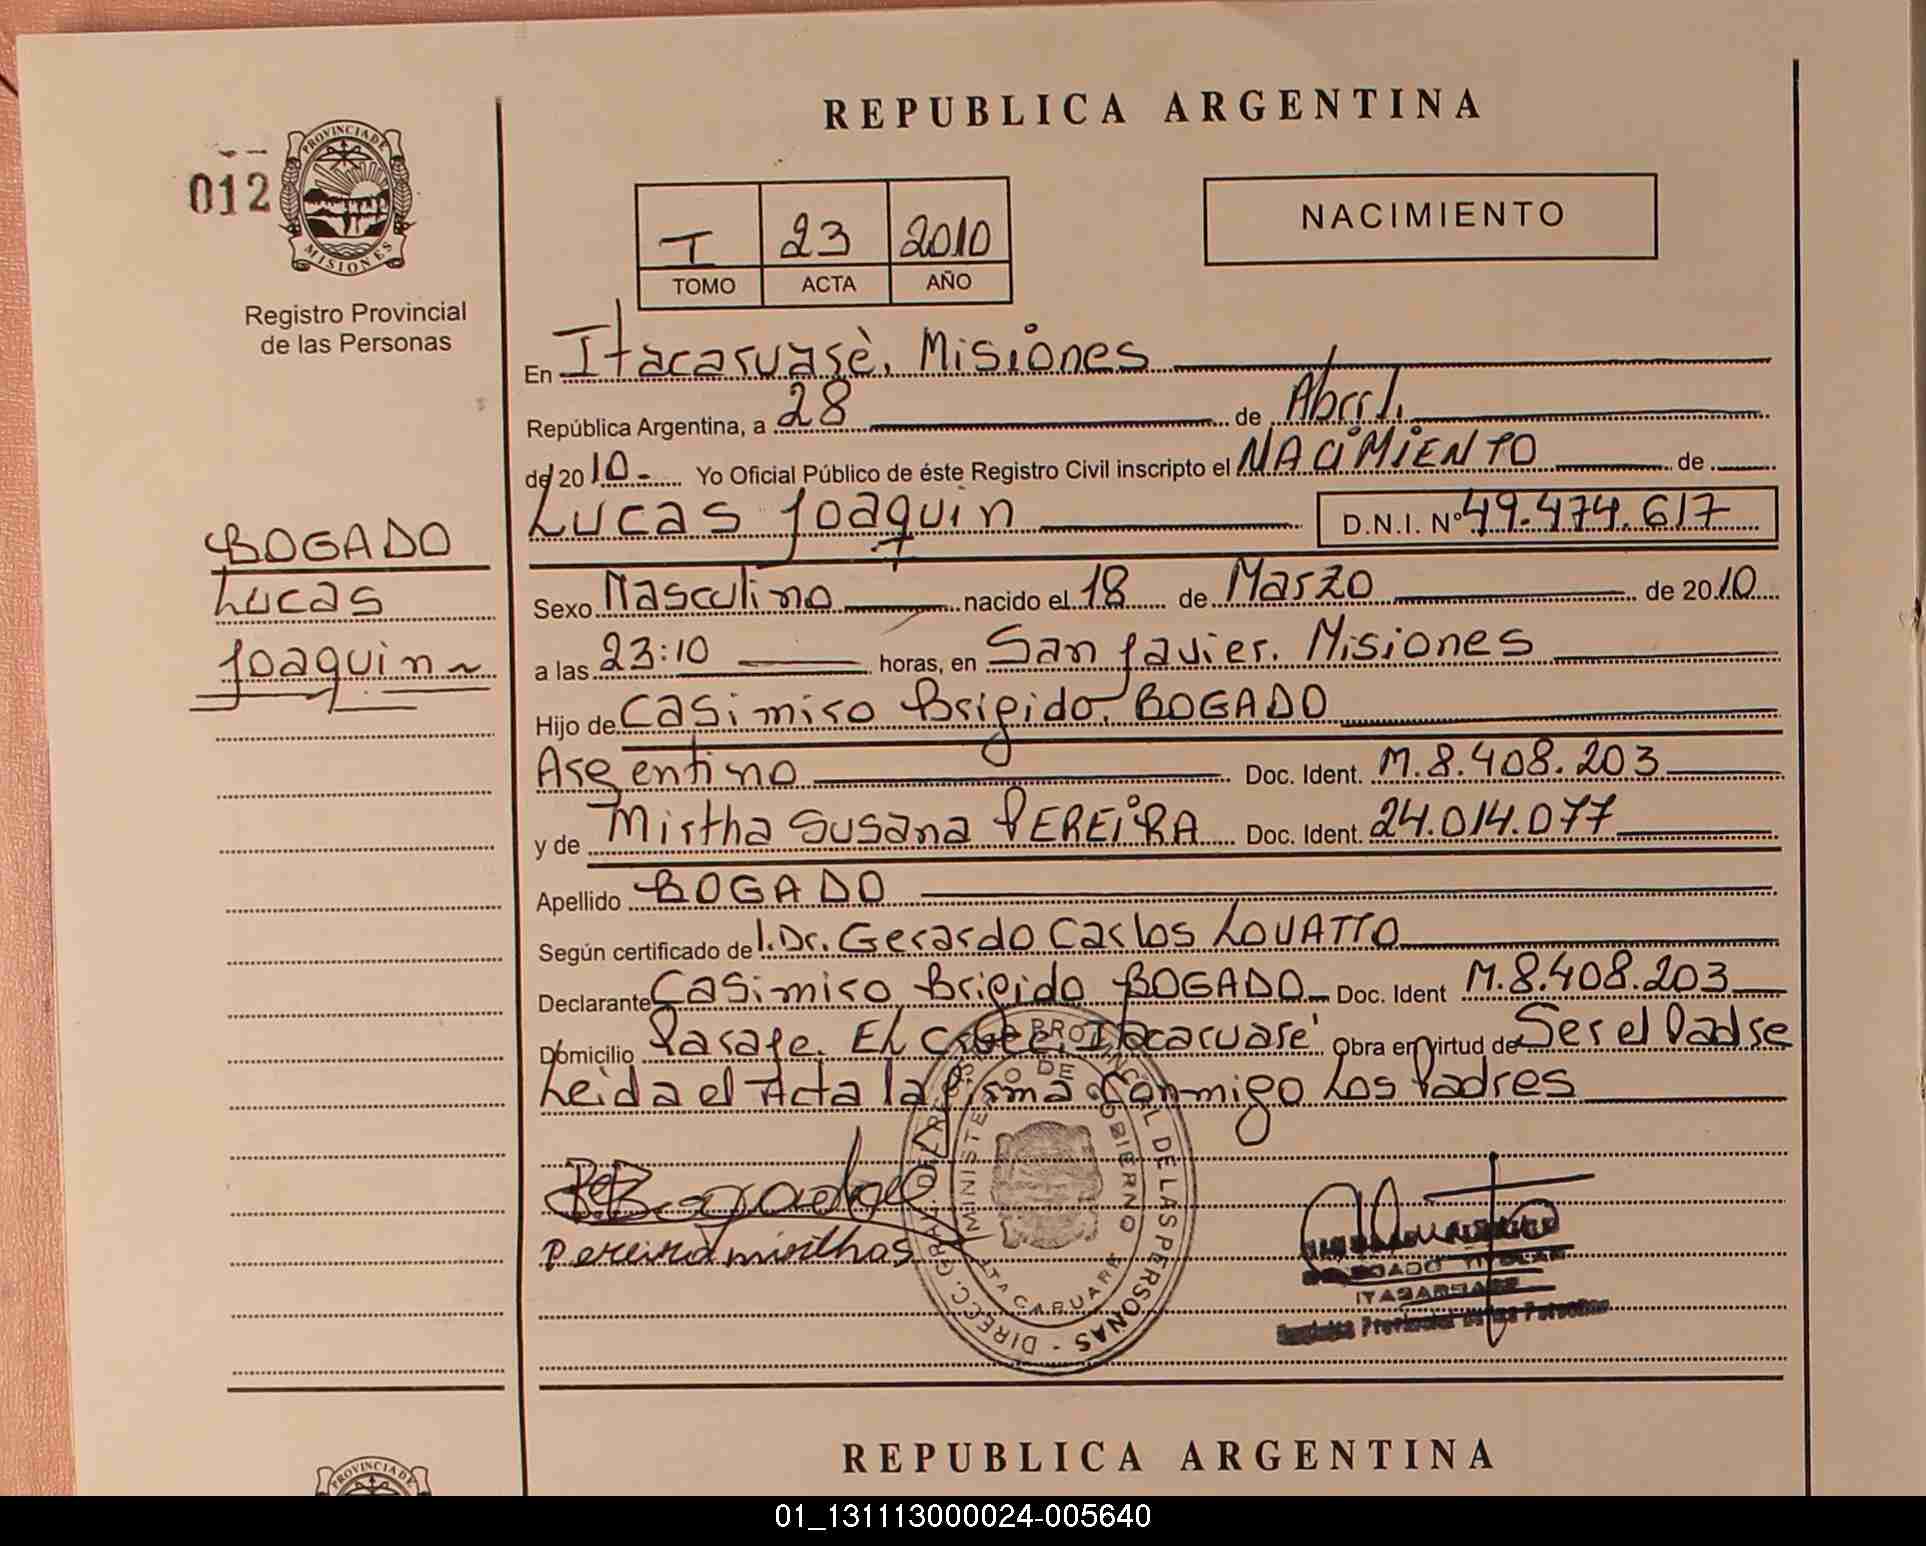 REPUBLICA ARGENTINA
012
PROVINCIA DE
MISIONES
Registro Provincial
de las Personas
I 23 2010
TOMO ACTA AÑO
NACIMIENTO
En Itacaruarè, Misiones
República Argentina, a 28 de Abril,
de 2010.- Yo Oficial Público de éste Registro Civil inscripto el NACIMIENTO de
Lucas Joaquin D.N.I. Nº 49.474.617
BOGADO
Lucas
Joaquin
Sexo Masculino nacido el 18 de Marzo de 2010
a las 23:10 horas, en San Javier. Misiones
Hijo de Casimiro Brigido, BOGADO
Argentino Doc. Ident. M.8.408.203
y de Mirtha Susana PEREIRA Doc. Ident. 24.014.077
Apellido BOGADO
Según certificado del Dr. Gerardo Carlos LOVATTO
Declarante Casimiro Brigido BOGADO Doc. Ident M.8.408.203
Domicilio Pasaje. El Itacaruaré Obra en virtud de Ser el Padre
Leida el Acta la firma Conmigo Los Padres
DIRECC. GRAL. DEL REG. PROVINCIAL DE LAS PERSONAS
MINISTERIO DE GOBIERNO
ITACARUARE
Pereira
TITULAR
ITACARUARE
Registro Provincial de las Personas
REPUBLICA ARGENTINA
PROVINCIA DE
01_131113000024-005640